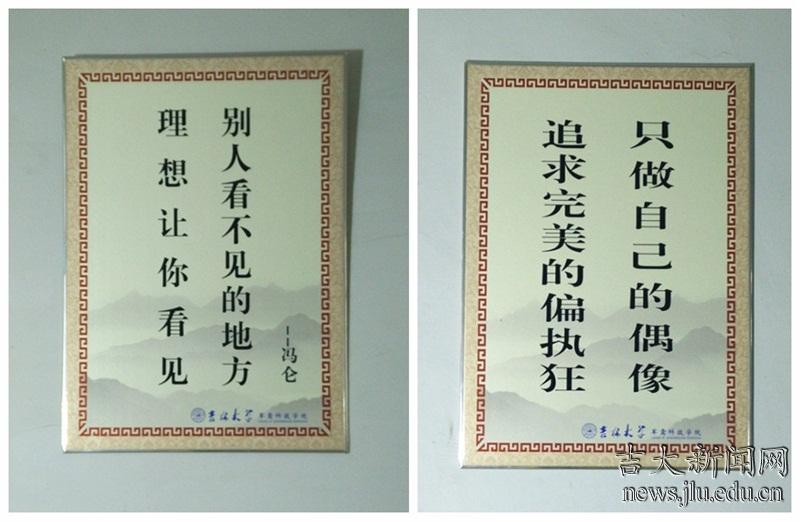 别人看不见的地方
理想让你看见
--冯仑
吉林大学 军需科技学院
只做自己的偶像
追求完美的偏执狂
吉林大学 军需科技学院
吉大新闻网
news.jlu.edu.cn